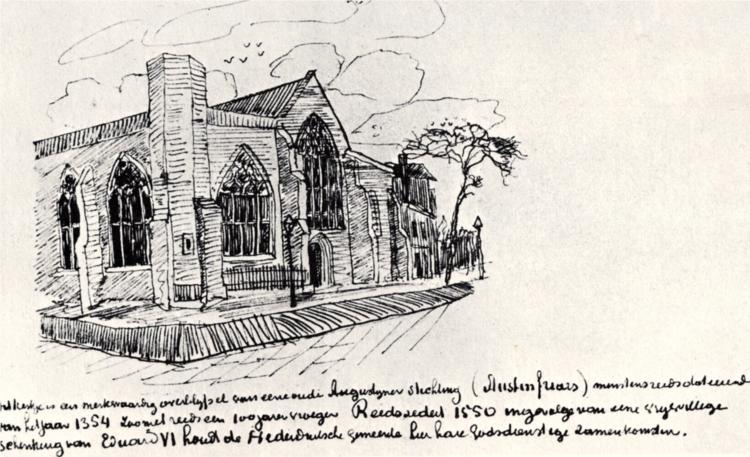 Dit kerkje is een merkwaardig overblijfsel van eene oude Augustyner stichting (Austinfriars) minstens reeds dateerende
van het jaar 1354 zoo niet reeds een 100 jaren vroeger Reeds sedert 1550 ingevolge van eene vrijwillige
schenking van Eduard VI houdt de Nederduitsche gemeente hier hare Godsdienstige zamenkomsten.